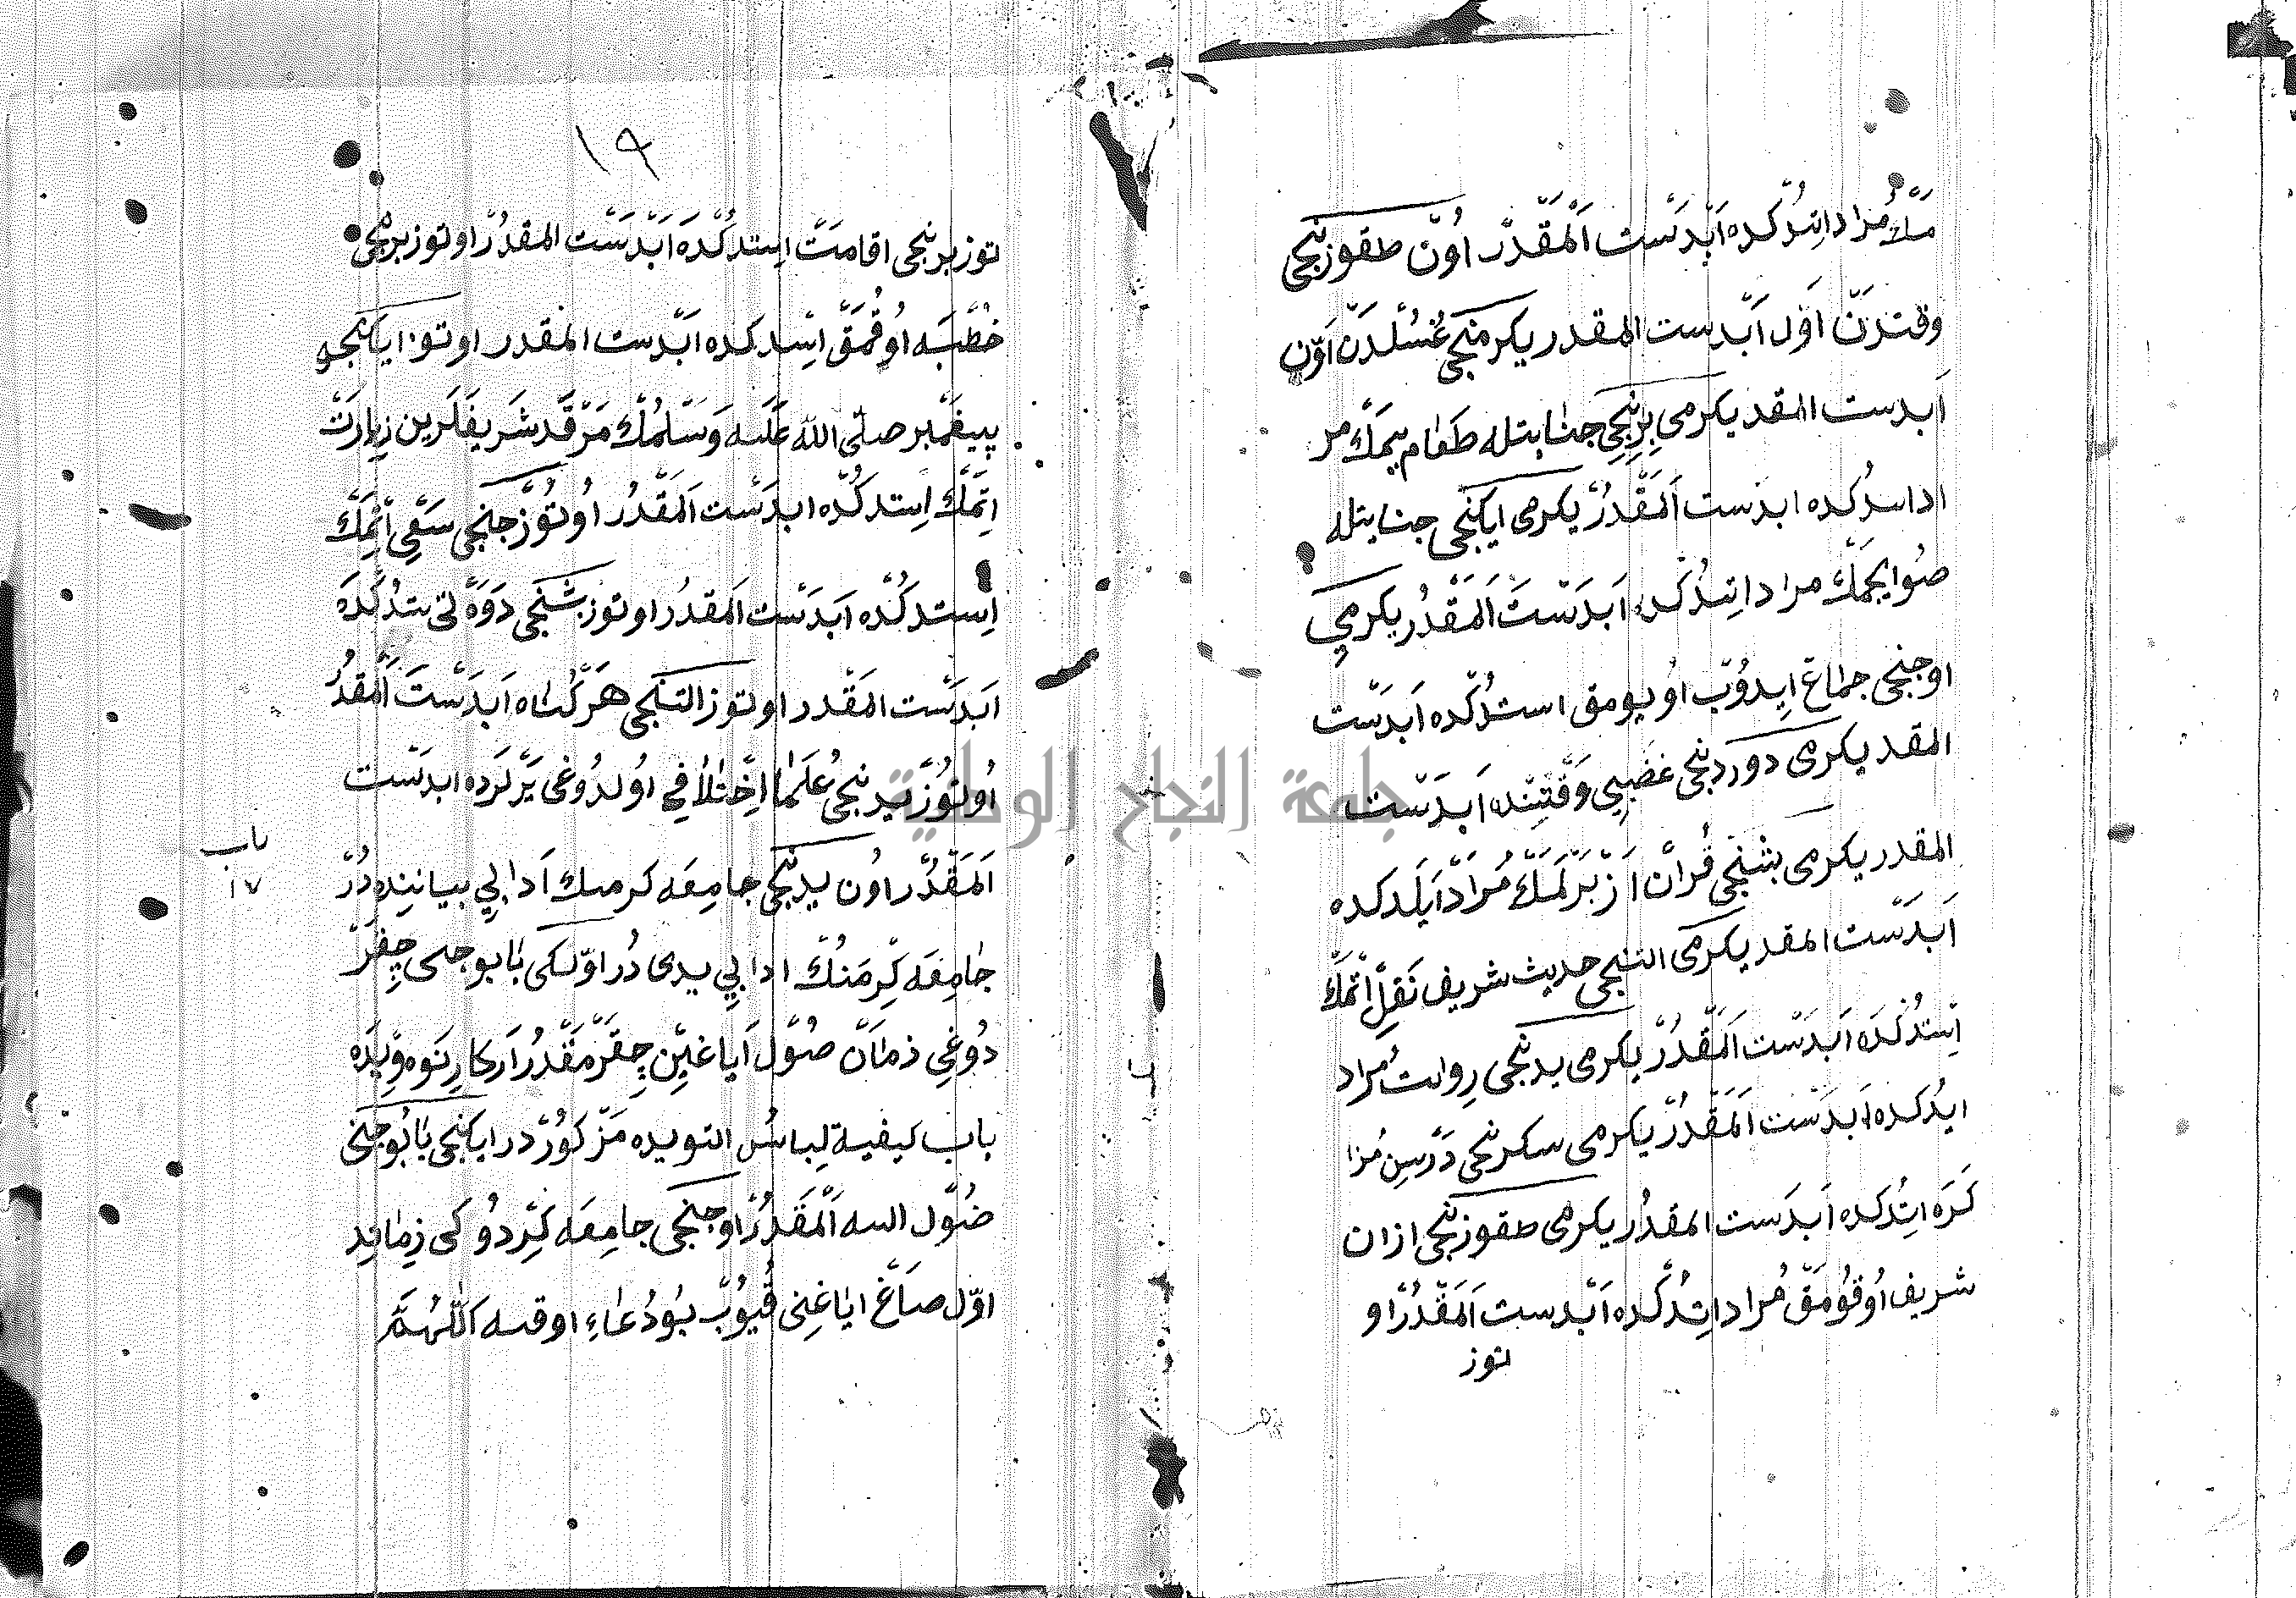 مك مراد اتدكده ابدست المقدر اون طقوزنجی
وقتدن اول ابدست المقدر يكرمنجی غسلدن اون
ابدست المقد يكرمی برنجی جنابتله طعام يمك مر
اد اسدكده ابدست المقدر يكرمی ايكنجی جنابتله
صو ايجمك مراد اتدكد ابدست المقدر يكرمی
اوجنجی جماع ايدوب اويومق استدكده ابدست
المقد يكرمی دوردنجی غضبی وقتنده ابدست
المقدر يكرمی بشنجی قران ازبرلمك مراد ايلدكده
ابدست المقد يكرمی التنجی حديث شريف نقل اتمك
استدكده ابدست المقدر يكرمی يدنجی روايت مراد
ايدكده ابدست المقدر يكرمی سكزنجی درسن مذا
كره اتدكده ابدست المقدر يكرمی طقوزنجی ازان
شريف اوقومق مراد اتدكده ابدست المقدر او
توز
١٩
توز برنجی اقامت استدكده ابدست المقدر اوتوز برنجی
خطبه اوقمق اسدكده ابدست المقدر اوتوز ايكنجی
پيغمبر صلی الله عليه وسلمك مرقد شريفلرين زيارت
اتمك استدكده ابدست المقدر اوتوز جنجی سعی اتمك
استدكده ابدست المقدر اوتوز بشنجی دوه اتی يتدكده
ابدست المقدر اوتوز التنجی هر كناه ابدست المقدر
اوتوز يدنجی علما اختلافی اولدوغی يرلرده ابدست
المقدر اون يدنجی جامعه كرمك ادابی بيانندە در
جامعه كرمنك ادابی يدی در اولكی بابوجی چقر
دوغی زمان صول اياغين چقرمقدر اركارنوه ويده
باب كيفية لباس التويده مزكوردر ايكنجی بابوجنی
صول اله المقدر اوجنجی جامعه كردوكی زمانده
اول صاغ اياغنی قيوب بو دعاء اوقيه اللهم
باب
١٧
جامعة النجاح الوطنية